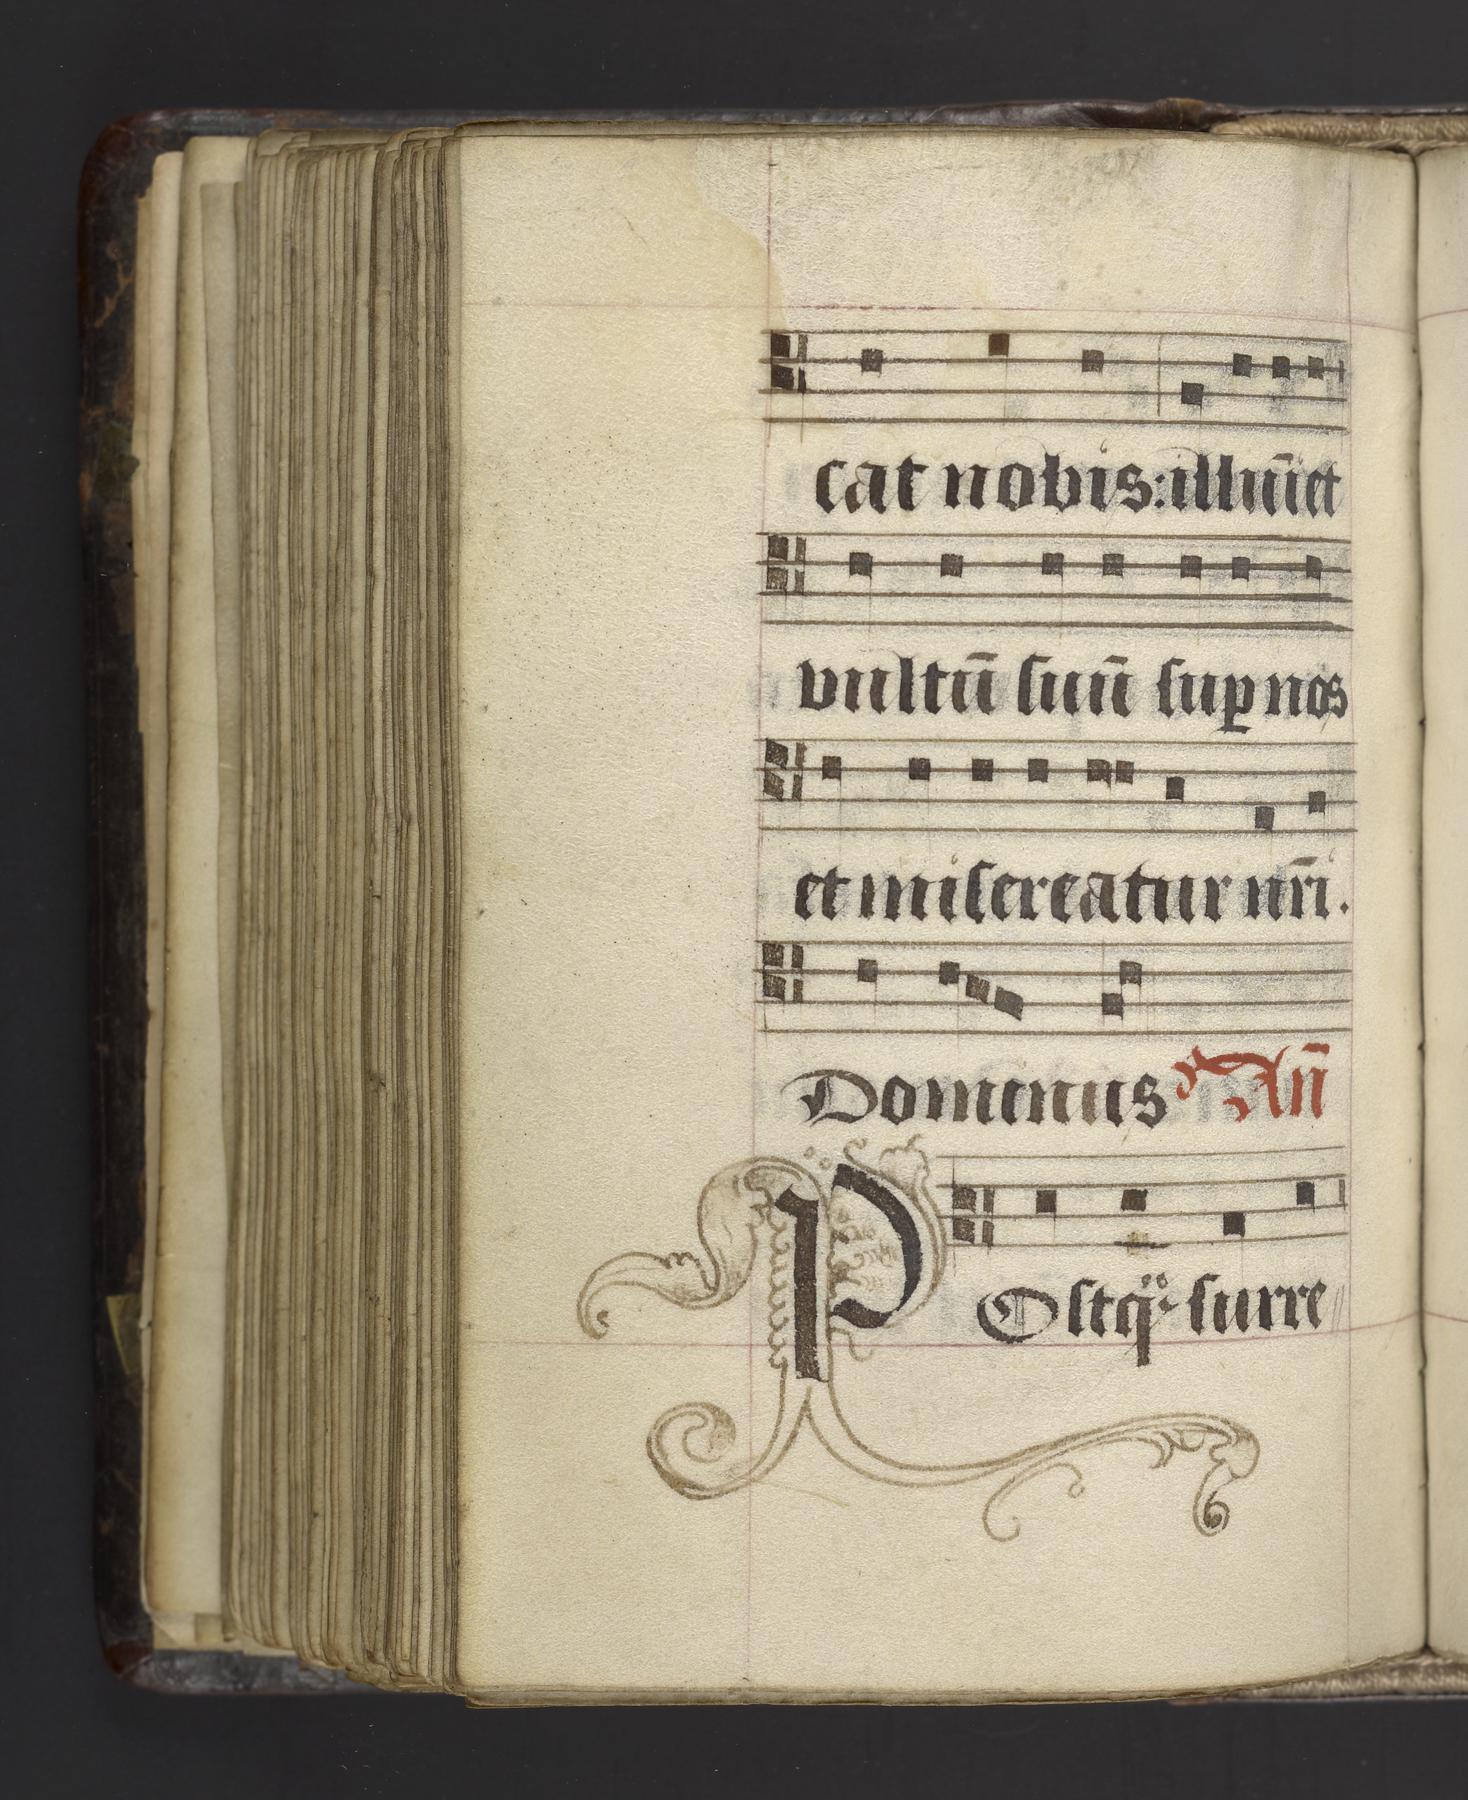 cat nobis: illuīet
vultū suū sup nos
et misereatur nr̄i.
Dominus Añ
POstq̈ᷓ surre